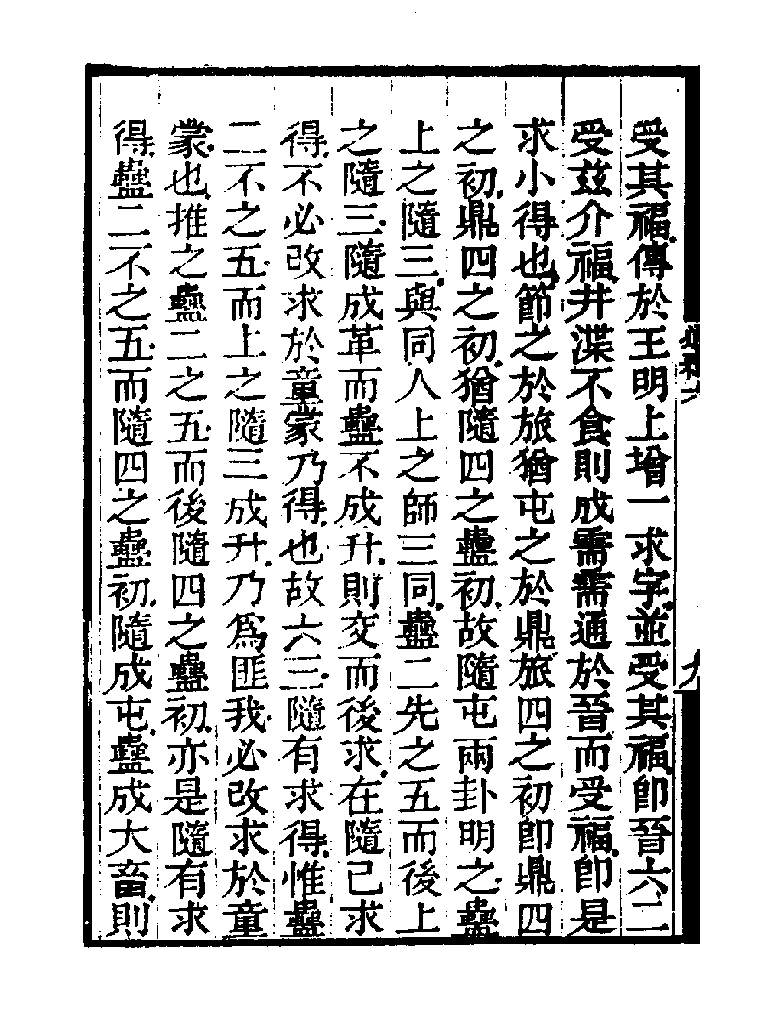 受其福傳於王明上增一求字並受其福卽晉六二
受茲介福井渫不食則成需需通於晉而受福卽是
求小得也節之於旅猶屯之於鼎旅四之初卽鼎四
之初鼎四之初猶隨四之蠱初故隨屯兩卦明之蠱
上之隨三與同人上之師三同蠱二先之五而後上
之隨三隨成革而蠱不成升則交而後求在隨已求
得不必改求於童蒙乃得也故六三隨有求得惟蠱
二不之五而上之隨三成升乃爲匪我必改求於童
蒙也推之蠱二之五而後隨四之蠱初亦是隨有求
得蠱二不之五而隨四之蠱初隨成屯蠱成大畜則